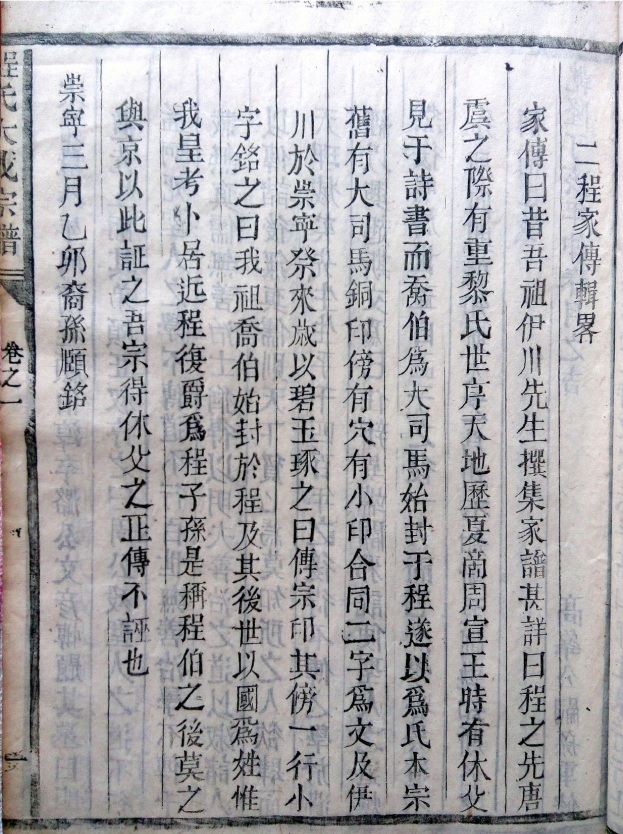 二程家傳輯畧
家傳曰昔吾祖伊川先生撰集家譜甚詳曰程之先唐
虞之際有重黎氏世序天地歷夏商周宣王時有休父
見于詩書而喬伯爲大司馬始封于程遂以爲氏本宗
舊有大司馬銅印傍有穴有小印合同二字爲文及伊
川於崇寧祭來歲以碧玉琢之曰傳宗印其傍一行小
字銘之曰我祖喬伯始封於程及其後世以國爲姓惟
我皇考卜居近程復爵爲程子孫是稱程伯之後莫之
與京以此証之吾宗得休父之正傳不誣也
崇寧三月乙卯裔孫頤銘
程氏大成宗譜
卷之一